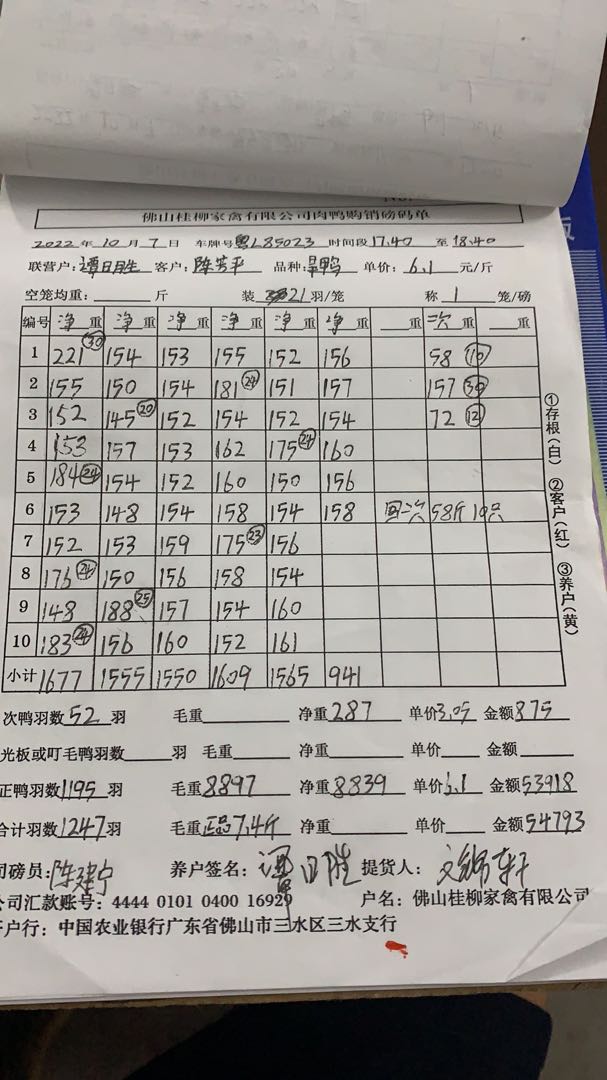 佛山桂柳家禽有限公司肉鸭购销磅码单
2022年10月7日 车牌号粤L85023 时间段17.40至18.40
联营户:谭日胜 客户:陈芳平 品种:旱鸭 单价:6.1元/斤
空笼均重: 斤 装21羽/笼 称1笼/磅
编号 净重 净重 净重 净重 净重 净重 重 次重 重
1 221 ㉚ 154 153 155 152 156 58 ⑩
2 155 150 154 181 ㉔ 151 157 157 ㉚
3 152 145 ⑳ 152 154 152 154 72 ⑫
4 153 157 153 162 175 ㉔ 160
5 184 ㉔ 154 152 160 150 156
6 153 148 154 158 154 158 回次 58斤 10只
7 152 153 159 175 ㉓ 156
8 176 ㉔ 150 156 158 154
9 148 188 ㉕ 157 154 160
10 183 ㉔ 156 160 152 161
小计 1677 1555 1550 1609 1565 941
次鸭羽数52羽 毛重 净重287 单价3.05 金额875
光板或叮毛鸭羽数 羽 毛重 净重 单价 金额
正鸭羽数1195羽 毛重8897 净重8839 单价6.1 金额53918
合计羽数1247羽 毛重正品7.4斤 净重 单价 金额54793
司磅员:陈建宁 养户签名:谭日胜 提货人:
公司汇款账号:4444 0101 0400 16929 户名:佛山桂柳家禽有限公司
开户行:中国农业银行广东省佛山市三水区三水支行
①存根(白) ②客户(红) ③养户(黄)